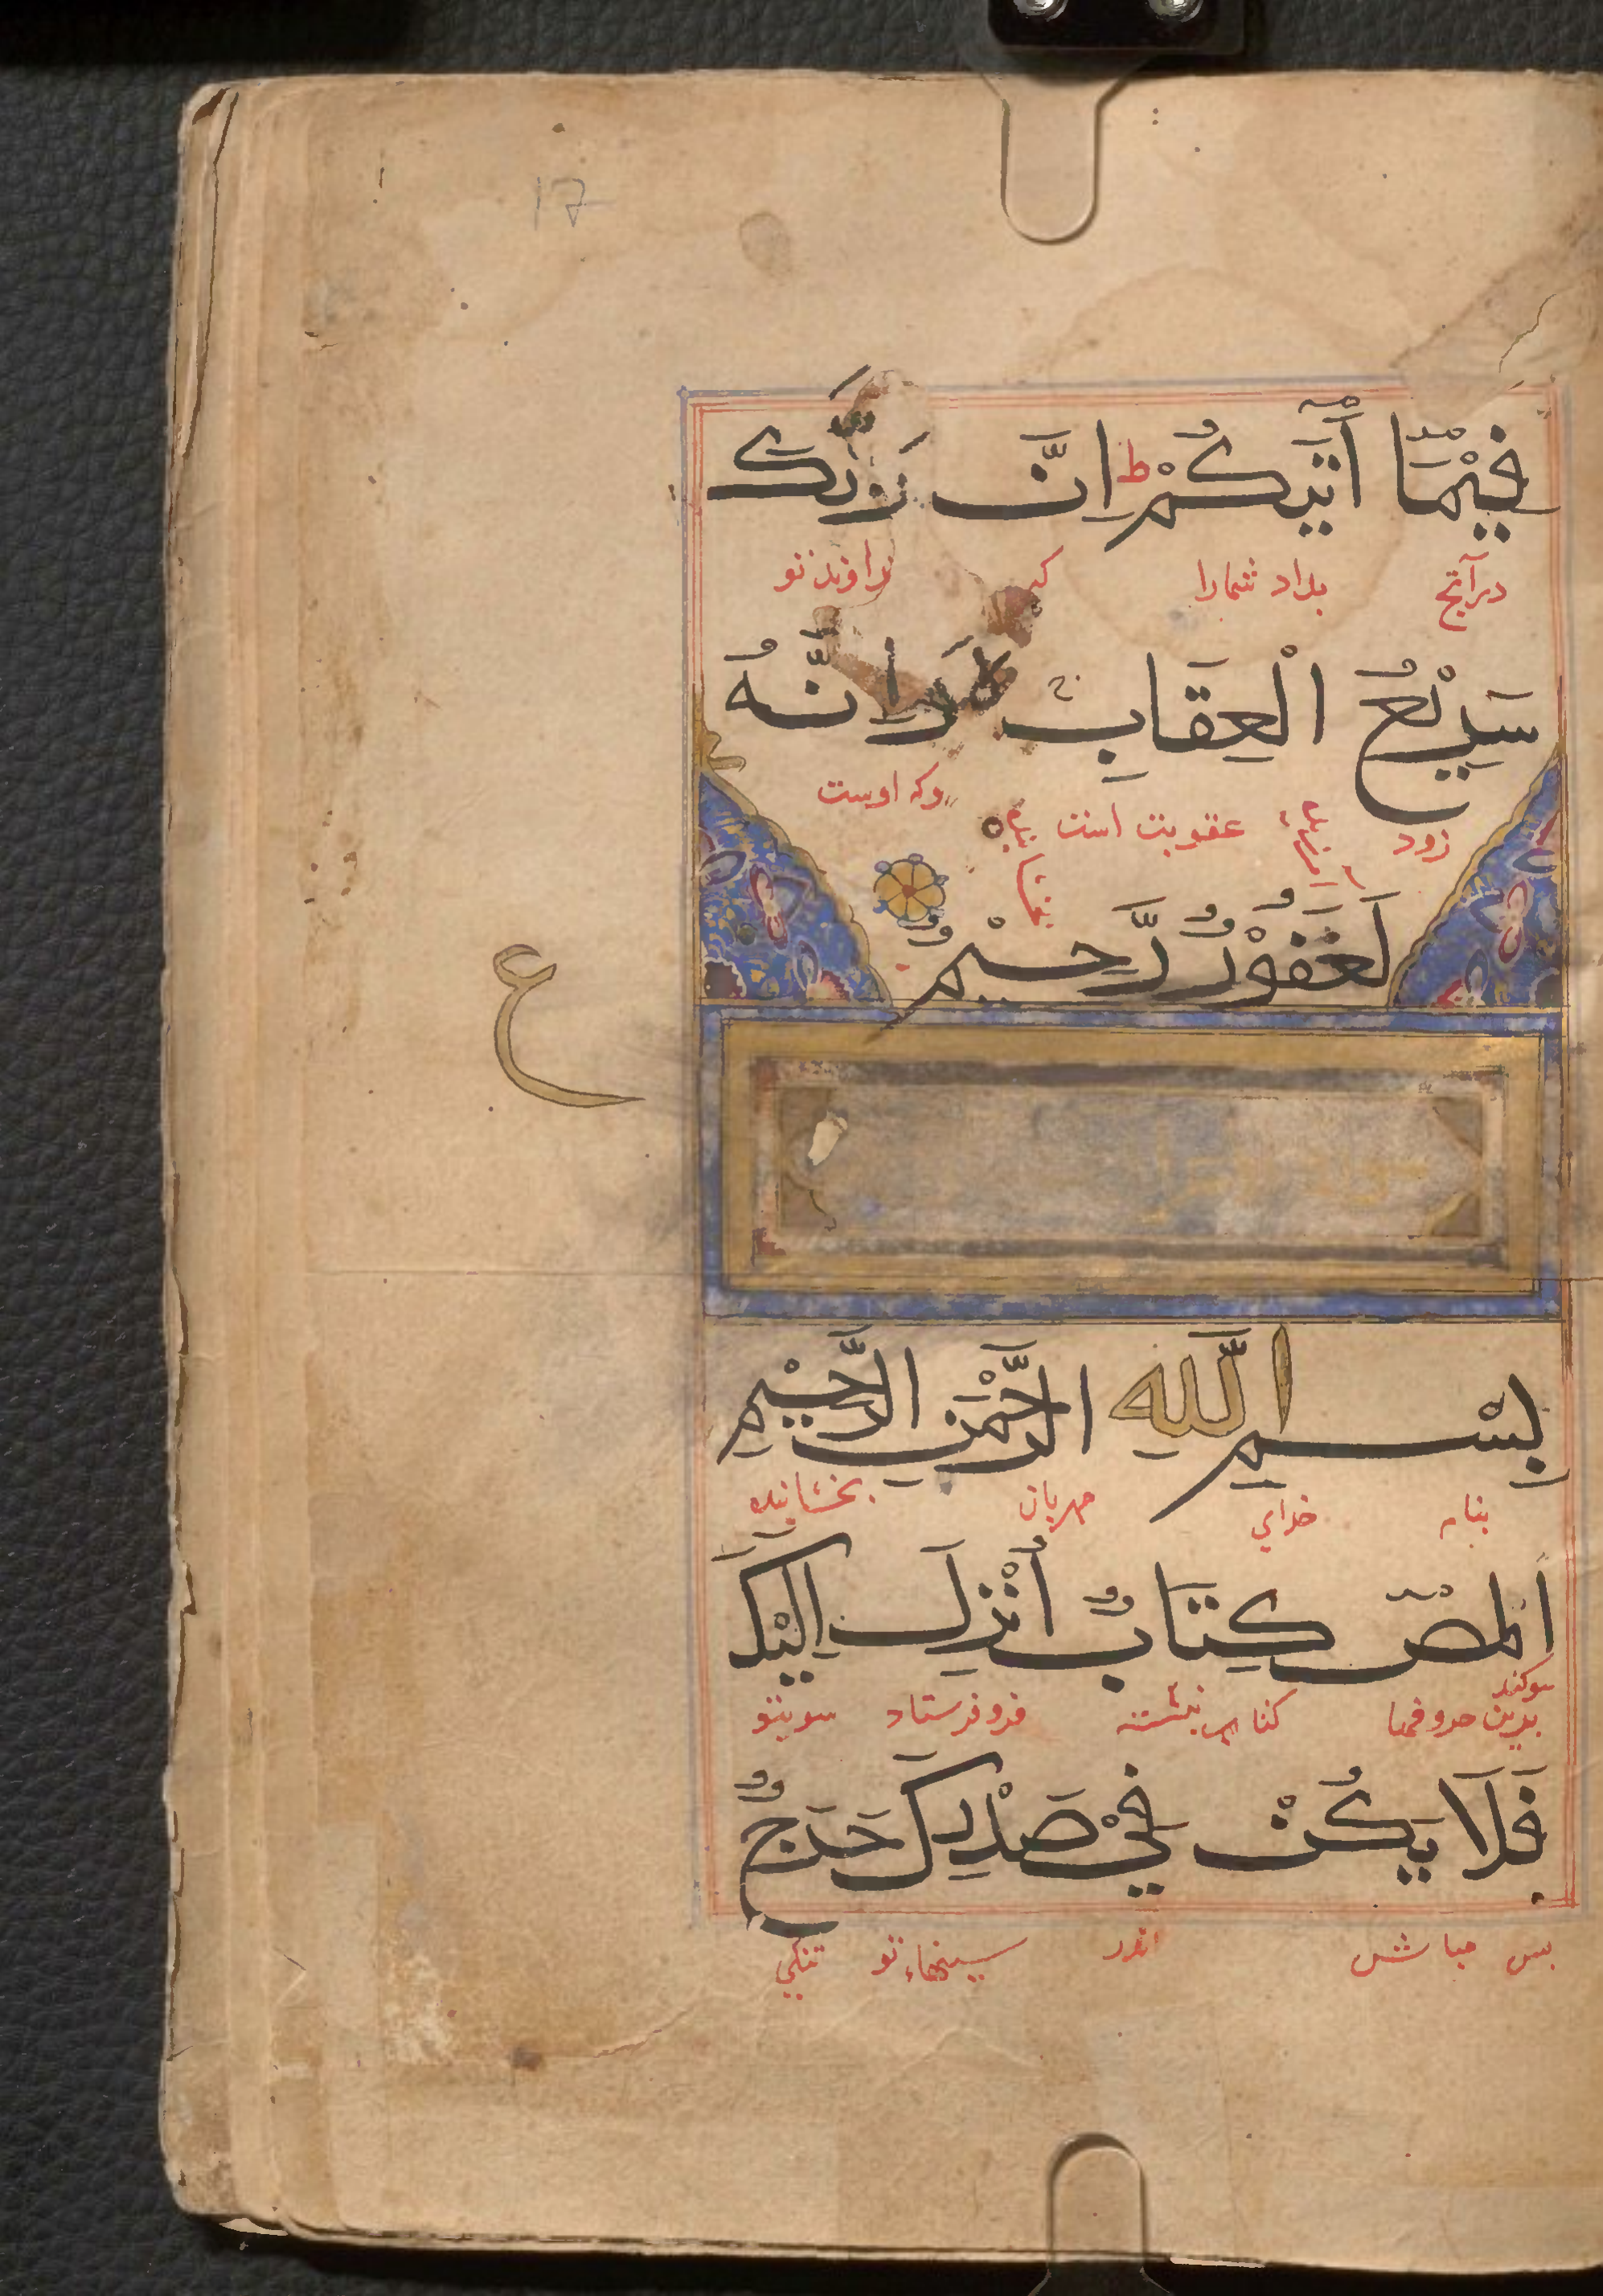 17
فِيْمَا أٰتٰيكُمْ ط اِنَّ رَبَّكَ
درآنچ بداد شمارا كه خداوند تو
سَرِيْعُ الْعِقَابِ وَاِنَّهُ
زود عقوبت است وكه اوست
لَغَفُوْرٌ رَّحِيْمٌ
ع
بِسْمِ اللّٰهِ الرَّحْمٰنِ الرَّحِيْمِ
بنام خداي مهربان بخشاينده
الٓمٓصٓ كِتَابٌ أُنْزِلَ اِلَيْكَ
سوكند
بدين حروفها كتابي نبشته فرو فرستاد سوي تو
فَلَا يَكُنْ فِيْ صَدْرِكَ حَرَجٌ
بس مباش اندر سينهاء تو تنكي